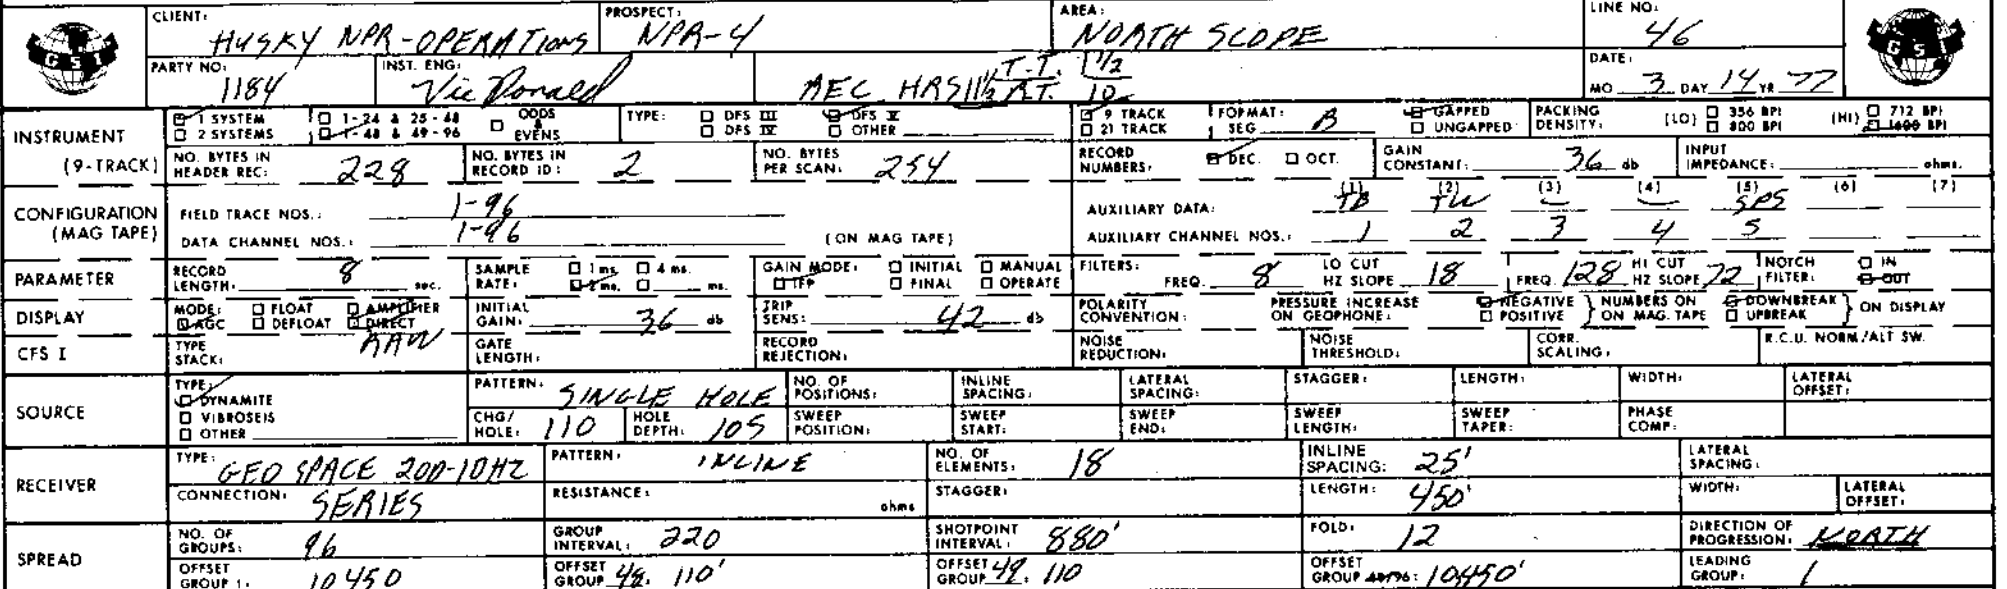 CLIENT: HUSKY NPR-OPERATIONS PROSPECT: NPR-4 AREA: NORTH SLOPE LINE NO: 46
GSI GSI
PARTY NO: 1184 INST. ENG: Vic Donald AEC HRS 11½ T.T. 1½ R.T. 10 DATE: MO 3 DAY 14 YR 77
INSTRUMENT (9-TRACK)
1 SYSTEM 1-24 & 25-48 ODDS & EVENS TYPE: DFS III DFS V 9 TRACK FORMAT: SEG B GAPPED PACKING DENSITY: (LO) 356 BPI (HI) 712 BPI
2 SYSTEMS 1-48 & 49-96 DFS IV OTHER 21 TRACK UNGAPPED 800 BPI 1600 BPI
NO. BYTES IN HEADER REC: 228 NO. BYTES IN RECORD ID: 2 NO. BYTES PER SCAN: 254 RECORD NUMBERS: DEC. OCT. GAIN CONSTANT: 36 db INPUT IMPEDANCE: ohms.
CONFIGURATION (MAG TAPE)
(1) (2) (3) (4) (5) (6) (7)
FIELD TRACE NOS.: 1-96 AUXILIARY DATA: TB TW — — SPS
DATA CHANNEL NOS.: 1-96 (ON MAG TAPE) AUXILIARY CHANNEL NOS.: 1 2 3 4 5
PARAMETER RECORD LENGTH: 8 sec. SAMPLE RATE: 1 ms. 4 ms. 2 ms. ms. GAIN MODE: INITIAL MANUAL IFP FINAL OPERATE FILTERS: FREQ. 8 LO CUT HZ SLOPE 18 FREQ. 128 HI CUT HZ SLOPE 72 NOTCH FILTER: IN OUT
DISPLAY MODE: FLOAT AMPLIFIER AGC DEFLOAT DIRECT INITIAL GAIN: 36 db TRIP SENS: 42 db POLARITY CONVENTION: PRESSURE INCREASE ON GEOPHONE: NEGATIVE POSITIVE NUMBERS ON ON MAG. TAPE DOWNBREAK UPBREAK ON DISPLAY
CFS I TYPE STACK: RAW GATE LENGTH: RECORD REJECTION: NOISE REDUCTION: NOISE THRESHOLD: CORR. SCALING: R.C.U. NORM./ALT SW.
SOURCE TYPE: DYNAMITE VIBROSEIS OTHER PATTERN: SINGLE HOLE NO. OF POSITIONS: INLINE SPACING: LATERAL SPACING: STAGGER: LENGTH: WIDTH: LATERAL OFFSET:
CHG/HOLE: 110 HOLE DEPTH: 105 SWEEP POSITION: SWEEP START: SWEEP END: SWEEP LENGTH: SWEEP TAPER: PHASE COMP:
RECEIVER TYPE: GEO SPACE 20D-10HZ PATTERN: INLINE NO. OF ELEMENTS: 18 INLINE SPACING: 25' LATERAL SPACING:
CONNECTION: SERIES RESISTANCE: ohms STAGGER: LENGTH: 450' WIDTH: LATERAL OFFSET:
SPREAD NO. OF GROUPS: 96 GROUP INTERVAL: 220 SHOTPOINT INTERVAL: 880' FOLD: 12 DIRECTION OF PROGRESSION: NORTH
OFFSET GROUP 1: 10450 OFFSET GROUP 48: 110' OFFSET GROUP 49: 110 OFFSET GROUP 48/96: 10450' LEADING GROUP: 1